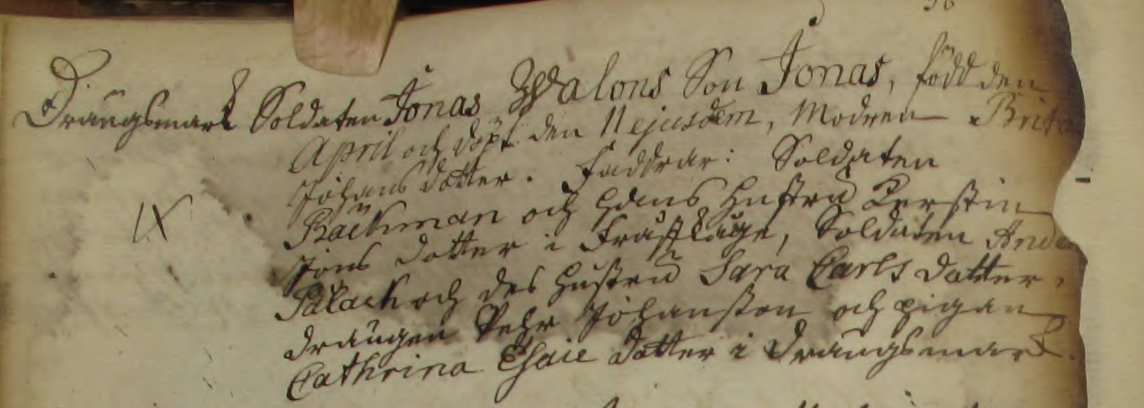 36
Drängsmark Soldaten Jonas Walons Son Jonas, född den
April och döpt den 11 ejusdem, Modren Brita
Johans dotter. Faddrar: Soldaten
Bäckman och hans hustru Kerstin
IX
Jöns dotter i Frostkåge, Soldaten Ande
Palack och des hustru Sara Carls dotter,
drängen Pehr Johansson och pigan
Cathrina Esaie dotter i Drängsmark.